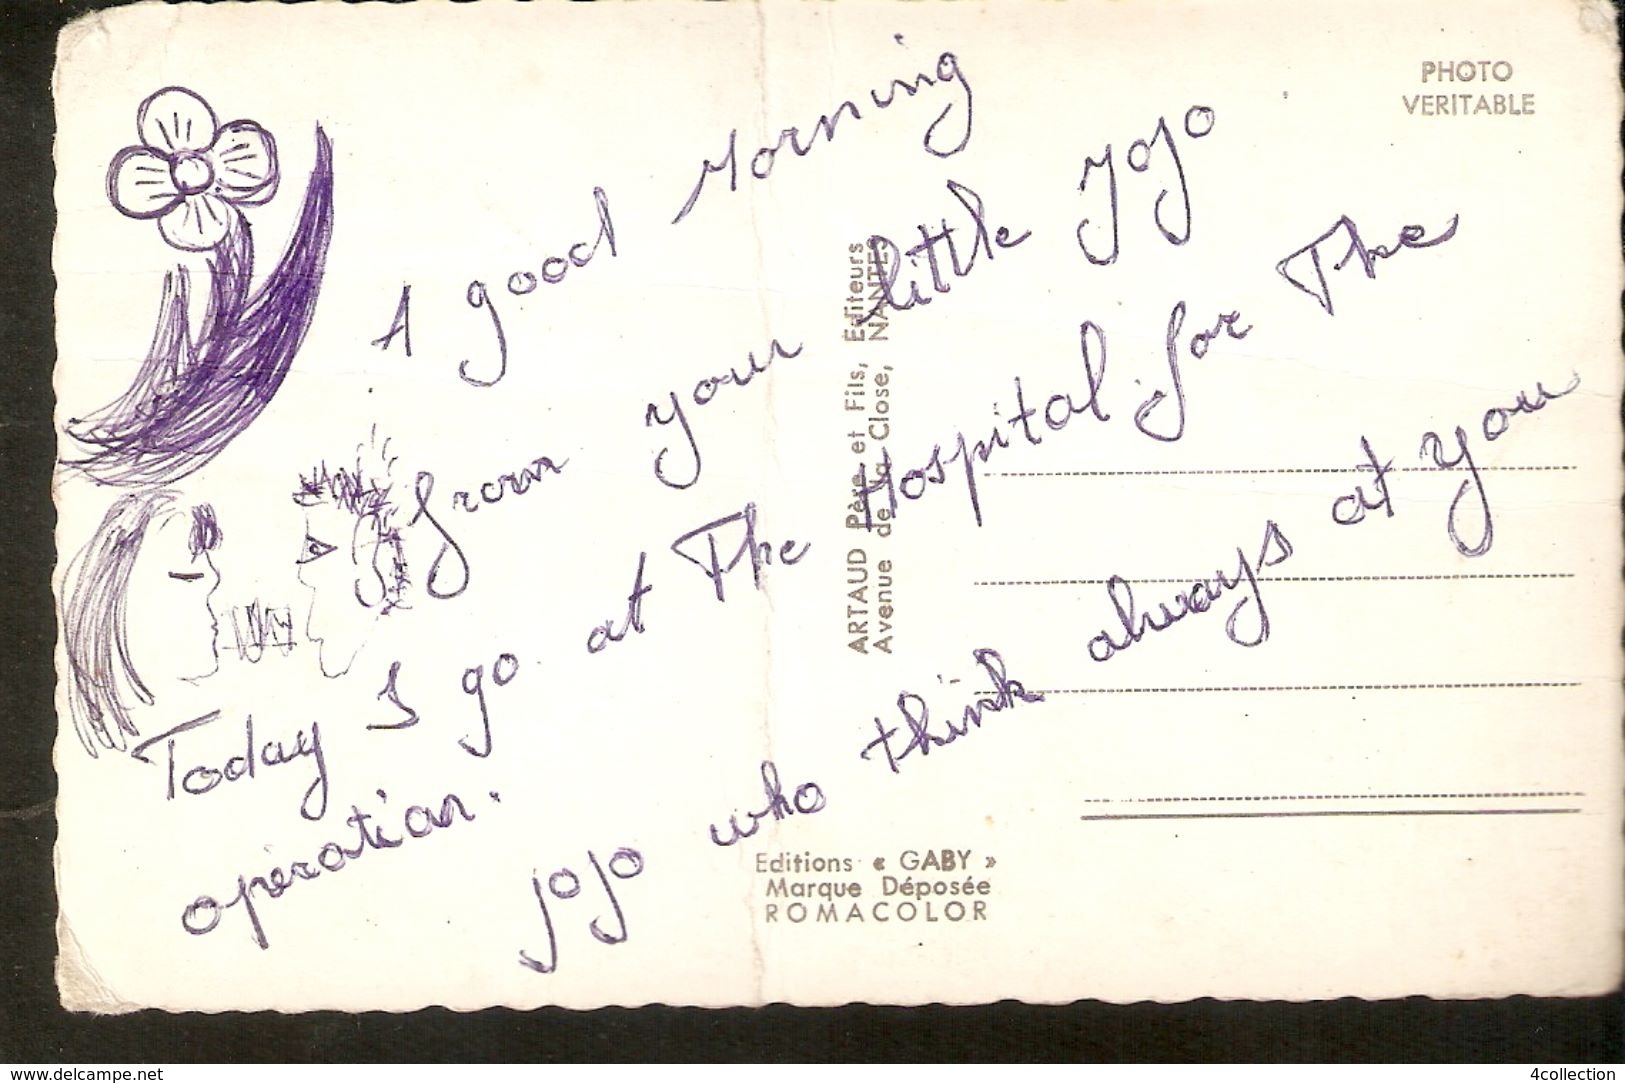 PHOTO
VERITABLE
A good Morning
from your little Jojo
Today I go at The Hospital for The
opération.
Jojo who think always at you
ARTAUD Père et Fils, Editeurs
Avenue de la Close, NANTES
Editions « GABY »
Marque Déposée
ROMACOLOR
www.delcampe.net
4collection